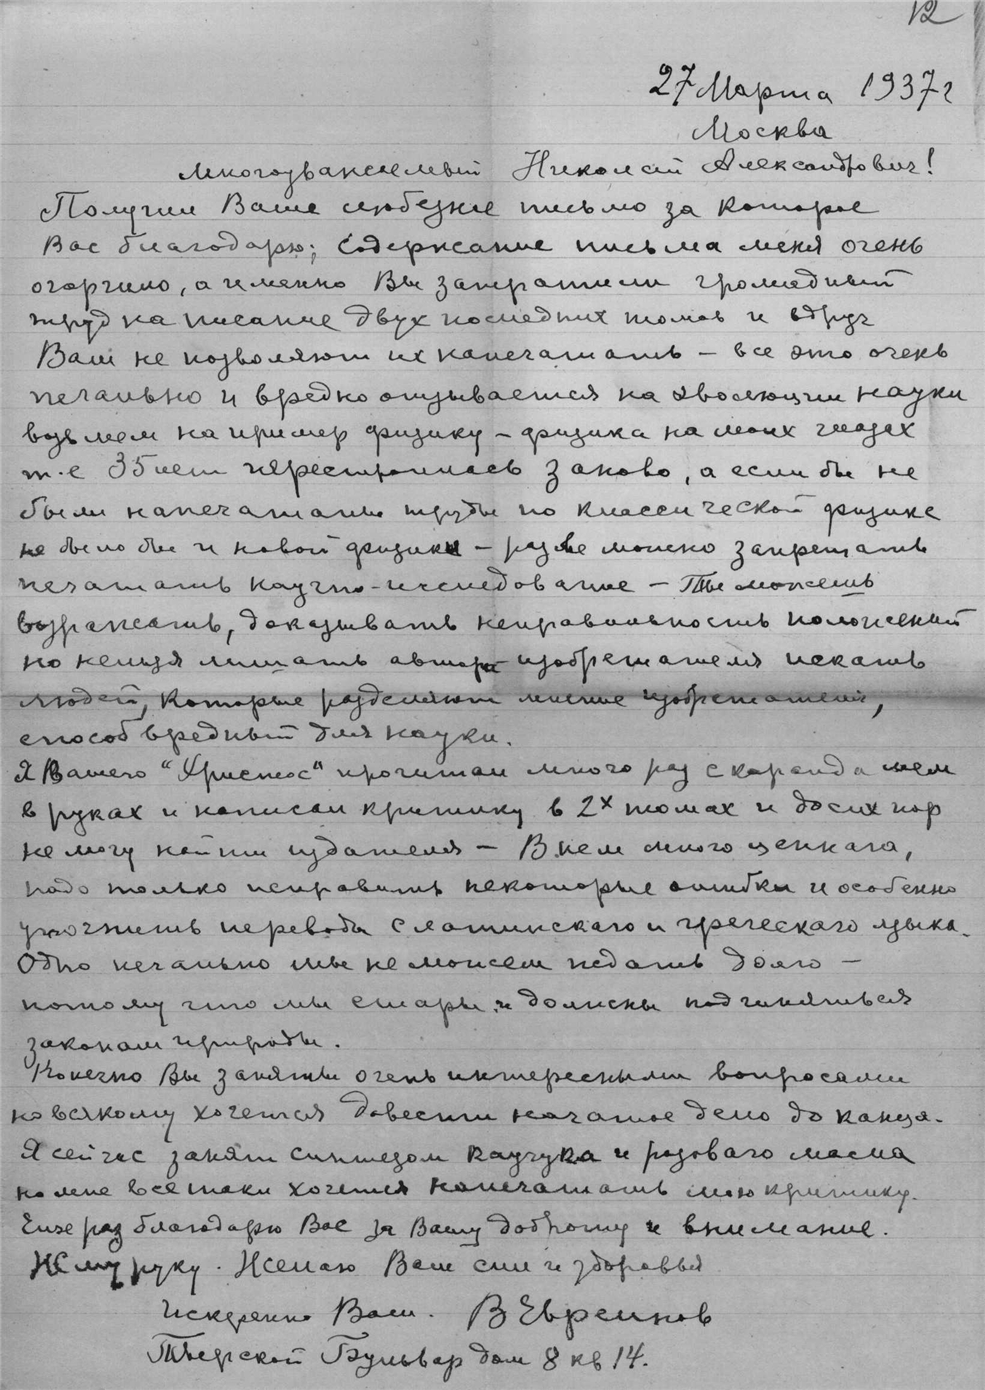 12
27 Марта 1937 г
Москва
Многоуважаемый Николай Александрович!
Получил Ваше любезное письмо за которое
Вас благодарю; содержание письма меня очень
огорчило, а именно Вы затратили громадный
труд на писание двух последних томов и вдруг
Вам не позволяют их напечатать – все это очень
печально и вредно отзывается на эволюции науки
возьмем на пример физику – физика на моих глазах
т-е 35 лет перестроилась заново, а если бы не
были напечатаны труды по классической физике
не было бы и новой физики – разве можно запрещать
печатать научно-исследование – Ты можешь
возражать, доказывать неправильность положений
но нельзя лишать автора изобретателя искать
людей, которые разделяют мнение изобретателя,
способ вредный для науки.
Я Вашего "Христос" прочитал много раз с карандашем
в руках и написал критику в 2х томах и до сих пор
не могу найти издателя – В нем много ценнаго,
надо только исправить некоторые ошибки и особенно
уточнить переводы с латинскаго и греческаго языка.
Одно печально мы не можем ждать долго –
потому что мы стары и должны подчиняться
законам природы.
Конечно Вы заняты очень интересными вопросами
но всякому хочется довести начатое дело до конца.
Я сейчас занят синтезом каучука и розоваго масла
но мне все таки хочется напечатать мою критику.
Еще раз благодарю Вас за Вашу доброту и внимание.
Жму руку. Желаю Вам сил и здоровья
Искренно Ваш. В Евреинов
Тверской Бульвар дом 8 кв 14.